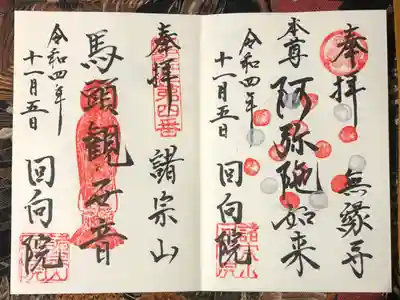 奉拝
無縁寺
本尊 阿弥陀如来
令和四年
十一月五日
回向院
奉拝
諸宗山
馬頭観世音
令和四年
十一月五日
回向院